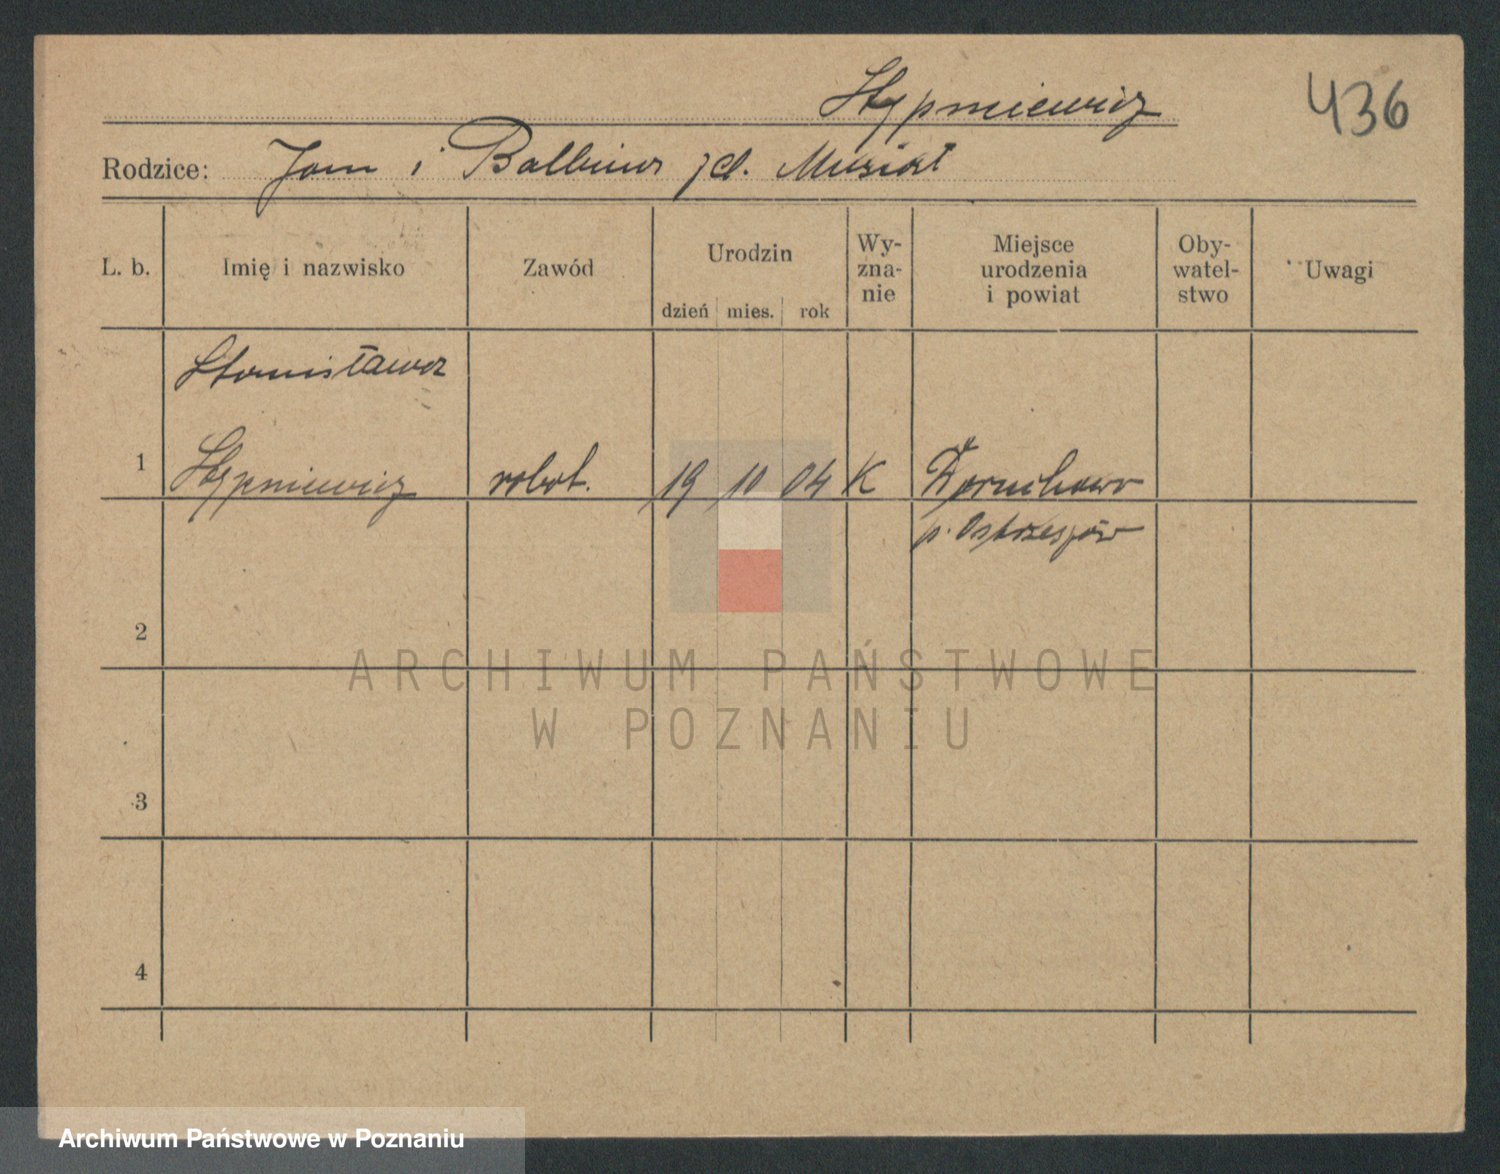 Stypniewicz
436
Rodzice: Jan i Balbina zd. Musiał
L. b.
Imię i nazwisko
Zawód
Urodzin
dzień mies. rok
Wy-
zna-
nie
Miejsce
urodzenia
i powiat
Oby-
watel-
stwo
Uwagi
Stanisława
1 Stypniewicz robot. 19 10 04 K Doruchowo
p. Ostrzeszów
2
ARCHIWUM PAŃSTWOWE
W POZNANIU
3
4
Archiwum Państwowe w Poznaniu